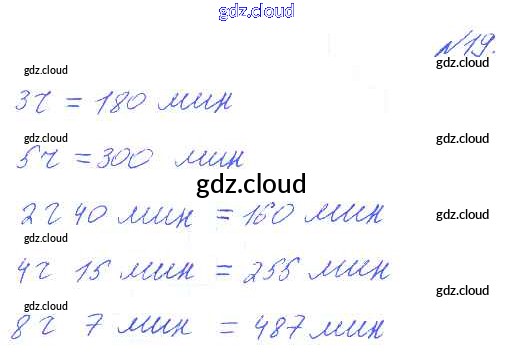 gdz.cloud
№19.
gdz.cloud gdz.cloud
3ч = 180 мин
gdz.cloud gdz.cloud
5ч = 300 мин
gdz.cloud
2ч 40 мин = 160 мин
gdz.cloud
gdz.cloud
4ч 15 мин = 255 мин
gdz.cloud
gdz.cloud
8ч 7 мин = 487 мин